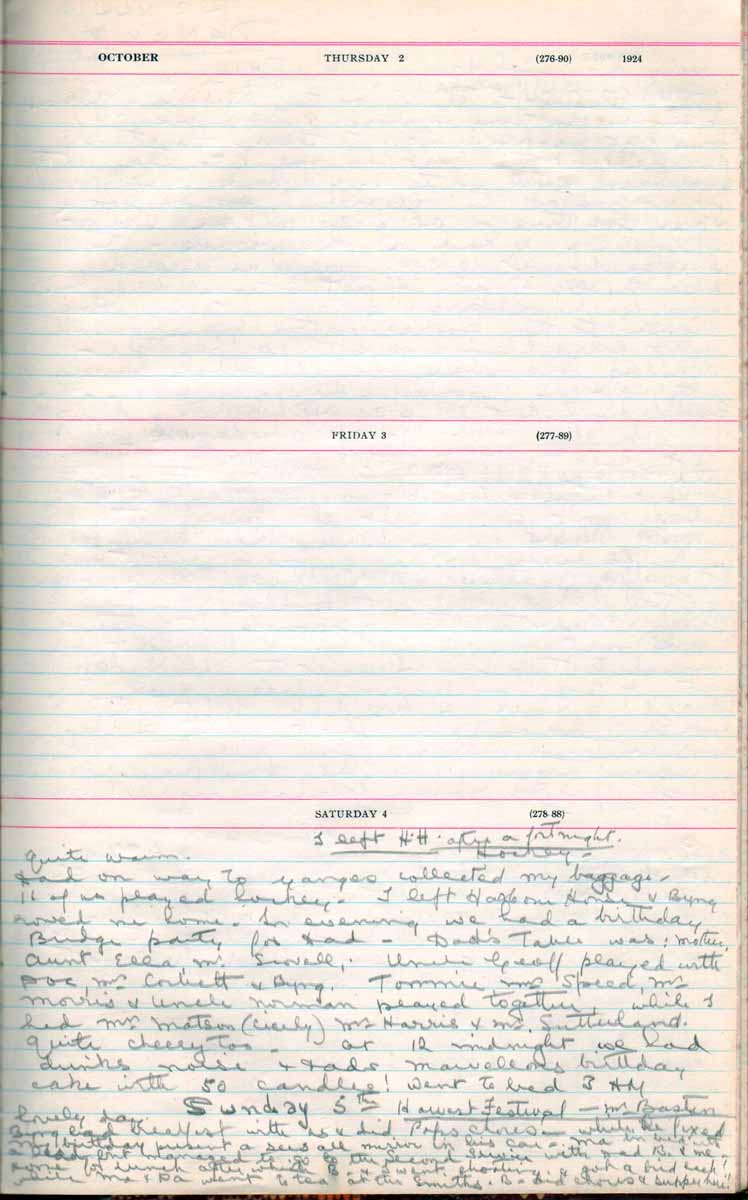 OCTOBER THURSDAY 2 (276-90) 1924
FRIDAY 3 (277-89)
SATURDAY 4 (278-88)
I left H.H. after a fortnight.
quite warm. Hockey-
Dad on way to Ganges collected my baggage-
11 of us played hockey- I left Harbour House & Byng
rowed me home. In evening we had a birthday
Bridge party for Dad - Dad's Table was: Mother,
Aunt Ella, Mr Scovell, Uncle Geoff played with
Doc, Mrs Corbett & Byng. Tommie Mrs Speed, Mr
Morris & Uncle Norman played together while I
had Mrs Matson (Cicely) Mr Harris & Mr Sutherland.
quite cheery too- at 12 midnight we had
drinks noise & Dads marvellous birthday
cake with 50 candles! Went to bed 3 AM
Sunday 5th Harvest Festival - Mr Bastin
lovely day.
Byng had breakfast with us & did Pop's chores - while he fixed
my birthday present a sees all mirror in his car - Ma in bed with
a head but managed to go to the second service with Dad B. & me -
home for lunch after which B. & I went shooting & got a bird each!
while Ma & Pa went to tea at the Smiths. B- did chores & supper here!